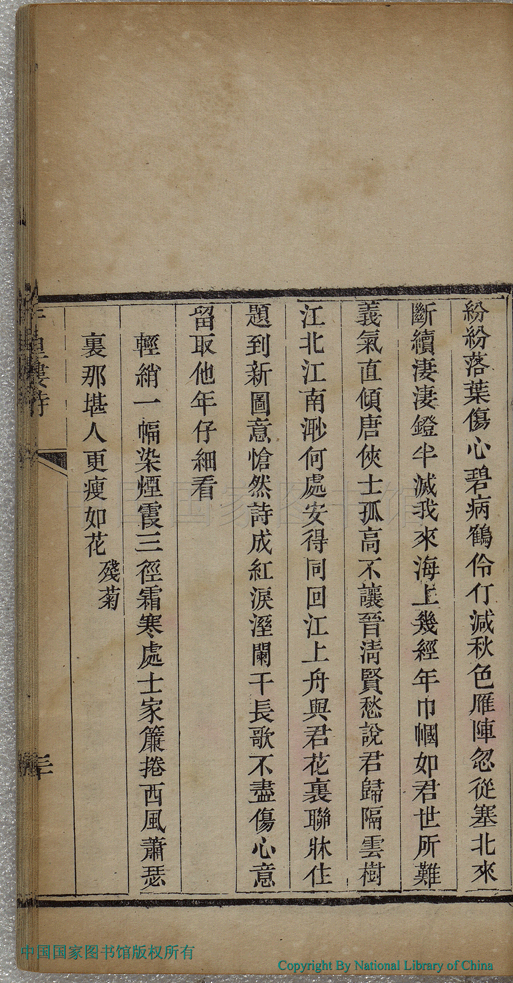 紛紛落葉傷心碧病鶴伶仃減秋色雁陣忽從塞北來
斷續淒淒鐙半滅我來海上幾經年巾幗如君世所難
義氣直傾唐俠士孤高不讓晉淸賢愁說君歸隔雲樹
江北江南渺何處安得同回江上舟與君花裏聯牀住
題到新圖意愴然詩成紅淚溼闌干長歌不盡傷心意
留取他年仔細看
輕綃一幅染煙霞三徑霜寒處士家簾捲西風蕭瑟
裏那堪人更瘦如花 殘菊
樓詩
三
中国国家图书馆版权所有
Copyright By National Library of China